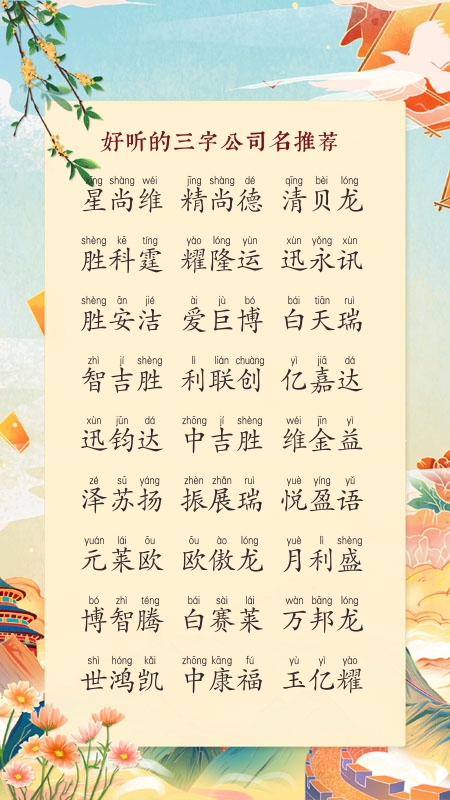 好听的三字公司名推荐
xīng shàng wéi jīng shàng dé qīng bèi lóng
星尚维 精尚德 清贝龙
shèng kē tíng yào lóng yùn xùn yǒng xùn
胜科霆 耀隆运 迅永讯
shèng ān jié ài jù bó bái tiān ruì
胜安洁 爱巨博 白天瑞
zhì jí shèng lì lián chuàng yì jiā dá
智吉胜 利联创 亿嘉达
xùn jūn dá zhōng jí shèng wéi jīn yì
迅钧达 中吉胜 维金益
zé sū yáng zhèn zhǎn ruì yuè yíng yǔ
泽苏扬 振展瑞 悦盈语
yuán lái ōu ōu ào lóng yuè lì shèng
元莱欧 欧傲龙 月利盛
bó zhì téng bái sài lái wàn bāng lóng
博智腾 白赛莱 万邦龙
shì hóng kǎi zhōng kāng fú yù yì yào
世鸿凯 中康福 玉亿耀